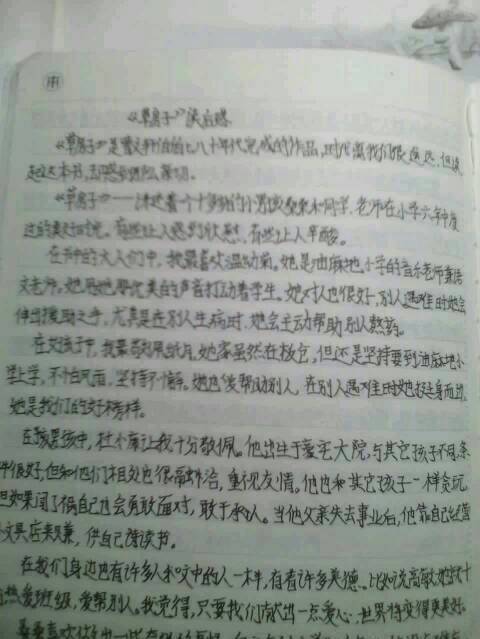 《草房子》读后感
《草房子》是曹文轩伯伯七八十年代完成的作品,时代离我们很遥远,但读
起这本书,却感到那么亲切。
《草房子》——讲述着一个十多岁的小男孩桑桑和同学、老师在小学六年中度
过的美好时光。有些让人感到欣慰,有些让人辛酸。
在书中的大人们中,我最喜欢温幼菊。她是油麻地小学的音乐老师兼语
文老师,她用她那优美的声音打动着学生。她对人也很好,别人遇难时她会
伸出援助之手,尤其是在别人生病时,她会主动帮助别人熬药。
在女孩子中,我最喜欢纸月。她家虽然在板仓,但还是坚持要到油麻地小
学上学,不怕风雨,坚持不懈。她也爱帮助别人,在别人遇难时她挺身而出,
她是我们的好榜样。
在孩子中,杜小康让我十分敬佩。他出生于豪宅大院,与其它孩子不同,条
件很好,但和他们相处也很融洽,重视友情。他也和其它孩子一样贪玩,
但如果闯了祸自己也会勇敢面对,敢于承认。当他父亲失去事业后,他靠自己经营
小文具店来赚,供自己读书。
在我们身边也有许多人和文中的人一样,有着许多美德。比如说高敏,她就十
分热爱班级,爱帮别人。我觉得,只要我们献出一点爱心,世界将变得更美好。